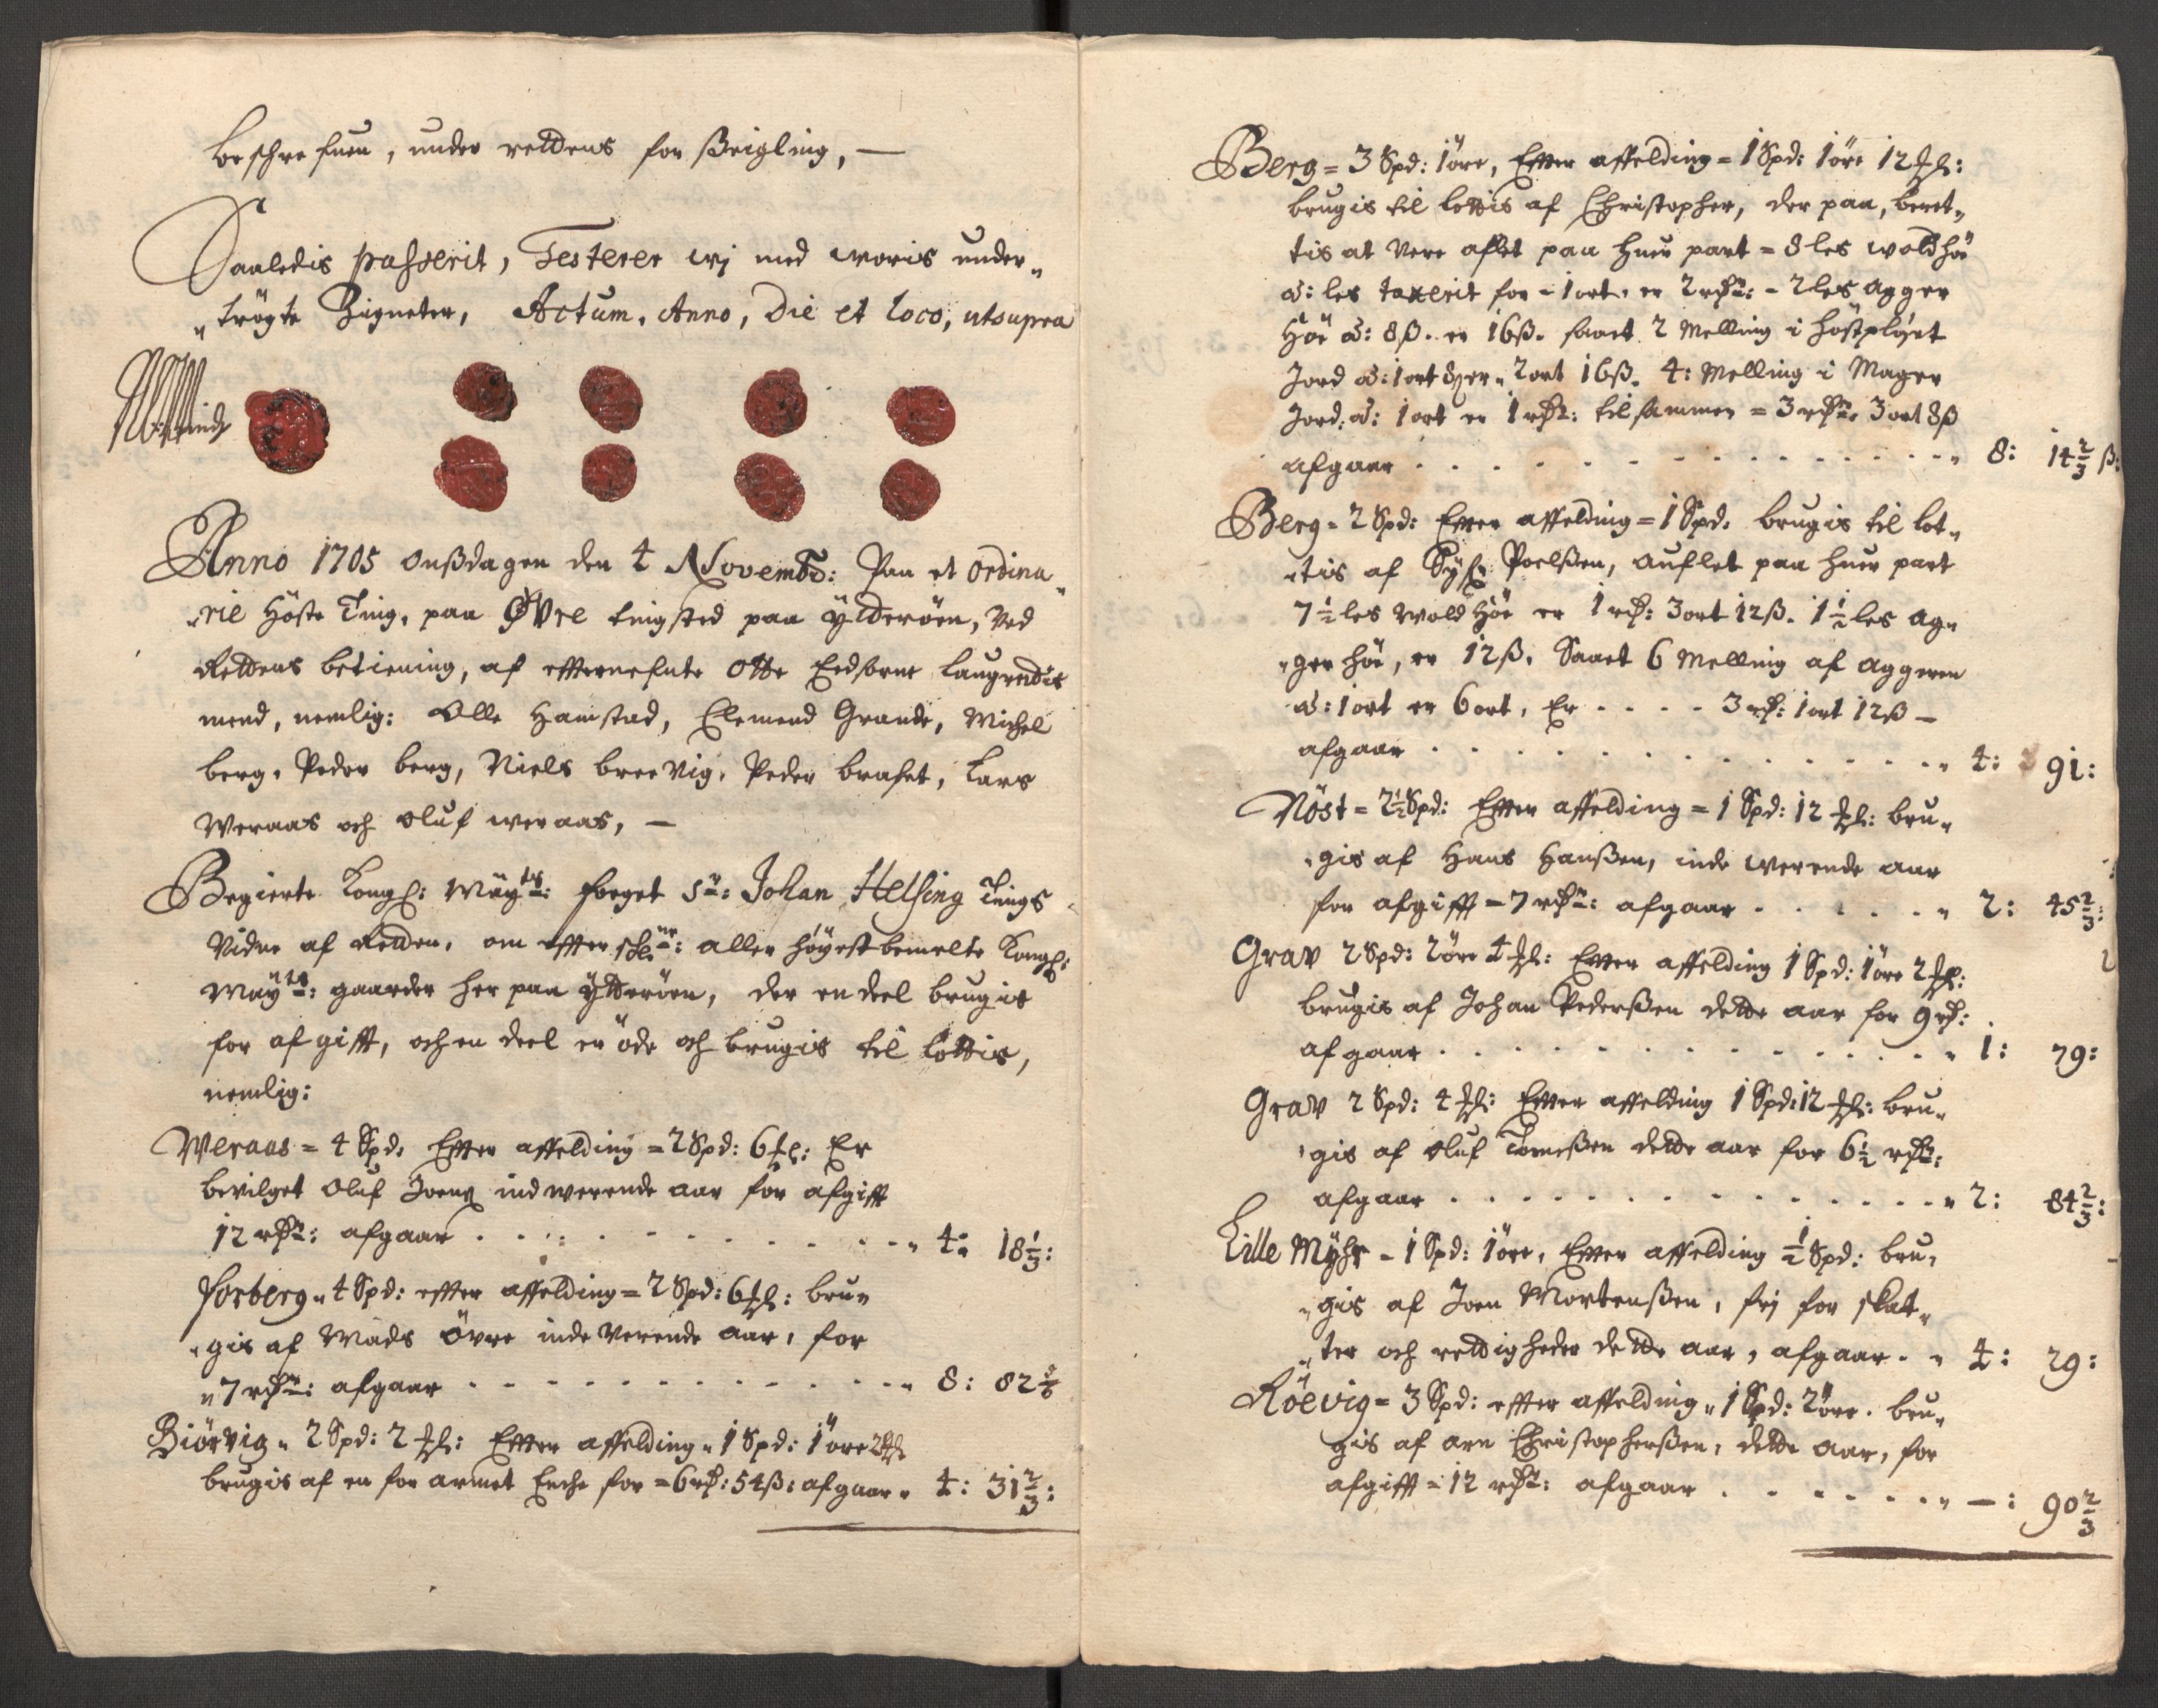 beschrefuen, under rettens for Seigling, —
Saaledis passerit, Testerer wj med woris under„
„trögte Zigneter, Actum, Anno, Die et loco, utsupra
Anno 1705 Onßdagen den 4 Novembr: Paa et ordina„
„rie Höste Ting, paa Øvre tingsted paa Ytterøen, Ved
Rettens betiening, af effternefnte Otte Eedsorne laugrettis
mend, nemlig: Olle Hamstad, Elemend Grande, Michel
berg, Peder berg, Niels breevig, Peder brafet, Lars
Weraas och Oluf weraas, —
Begierte Kongl: Mayts: foeget Sr: Johan Helsing Tings
Vidne af Retten, om effterschr: aller höyestbemelte Kongl:
Mayts: gaarder her paa Ytterøen, der en deel brugis
for afgifft, och en deel er öde och brugis til lottis,
nemlig:
Weraas = 4 Spd: Effter affelding = 2 Spd: 6 : Er
bevilget Oluf indwerende aar for afgifft
12 rdr: afgaar . . . . . . „ 4: 18 1/3:
forberg „ 4 Spd: effter affelding = 2 Spd: 6 : bru„
„gis af Mads Övre inde verende aar, for
„7 rdr: afgaar . . . . . . „ 8: 82
Biörvig „ 2 Spd: 2 : Effter affelding „ 1 Spd: 1 öre 2
brugis af en for armet Enche for = 6 rd: 54 ß: afgaar „ 4: 31 2/3:
Berg = 3 Spd: 1 öre, Effter affelding = 1 Spd: 1 öre 12 :
brugis til lottis af Christopher, der paa, beret„
tis at vere aflet paa huer part = 8 les woldhöe
á: les taxerit for = 1 ort er 2 rdr: - 2 les agger
Höe á: 8 ß. er 16 ß. saaet 2 Melling i höstplöyet
Jord á: 1 ort 8 er „ 2 ort 16 ß. 4: Melling i Mager
Jord á: 1 ort er 1 rdr: tilsammen = 3 rdr 3 ort 8 ß
afgaar . . . . . . „ 8: 14 2/3 ß:
Berg = 2 Spd: Effter affelding = 1 Spd: brugis til lot„
„tis af Poelßen, auflet paa huer part
7 1/2 les wold Höe er 1 rd: 3 ort 12 ß. 1 1/2 les ag„
„ger höe, er 12 ß. Saaet 6 Melling af aggeren
á: 1 ort er 6 ort, Er . . . . 3 rd: 1 ort 12 ß —
afgaar . . . . . . „ 4: 91:
Nöst = 2 1/2 Spd: Effter affelding = 1 Spd: 12 : bru„
„gis af Hans Hanßen, inde werende aar
for afgifft = 7 rdr: afgaar . . . . „ 2: 45 2/3:
Grav 2 Spd: 2 öre 4 : Effter affelding 1 Spd: 1 öre 2 :
brugis af Johan Pederßen dette aar for 9 rd:
afgaar . . . . . . „ 1: 79:
Grav 2 Spd: 4 : Effter affelding 1 Spd: 12 : bru„
„gis af Oluf Tomeßen dette aar for 6 1/2 rdr:
afgaar . . . . . . „ 2: 84 2/3:
Lille Myhr = 1 Spd: 1 öre, Effter affelding 1/2 Spd: bru„
„gis af Joen Mortenßen, frj for skat„
„ter och rettigheder dette aar, afgaar . „ 4: 29:
Röevig = 3 Spd: effter affelding „ 1 Spd: 2 öre. bru„
gis af arn Christopherßen, dette aar, for
afgifft = 12 rdr: afgaar . . . . „ —: 90 2/3